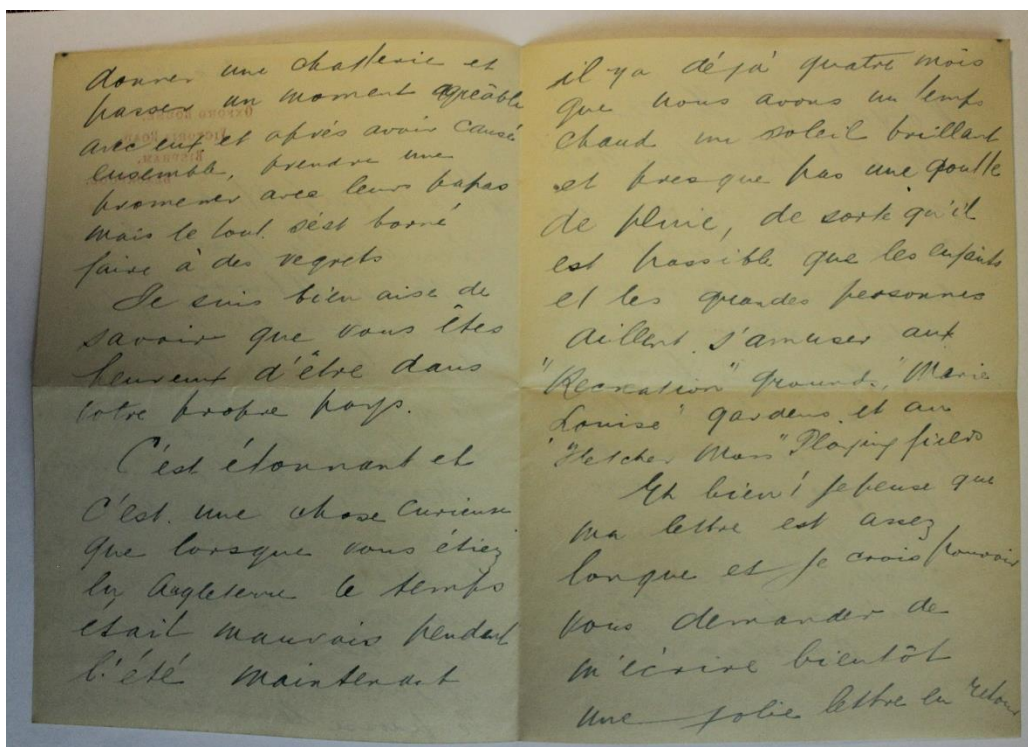 donner une chatterie et
passer un moment agréable
avec eux et après avoir causés
ensemble, prendre une
promener avec leurs papas
mais le tout s'est borné
faire à des regrets
Je suis bien aise de
savoir que vous êtes
heureux d'être dans
votre propre pays.
C'est étonnant et
c'est une chose curieuse
que lorsque vous étiez
en Angleterre le temps
était mauvais pendant
l'été maintenant
il ya déjà quatre mois
que nous avons un temps
chaud un soleil brillant
et presque pas une goutte
de pluie, de sorte qu'il
est possible que les enfants
et les grandes personnes
aillent s'amuser aux
"Recreation" grounds, "Marie
Louise" gardens et au
"Fletcher Moss" Playing fields
Eh bien! je pense que
ma lettre est assez
longue et je crois pouvoir
vous demander de
m'écrire bientôt
une jolie lettre en retour